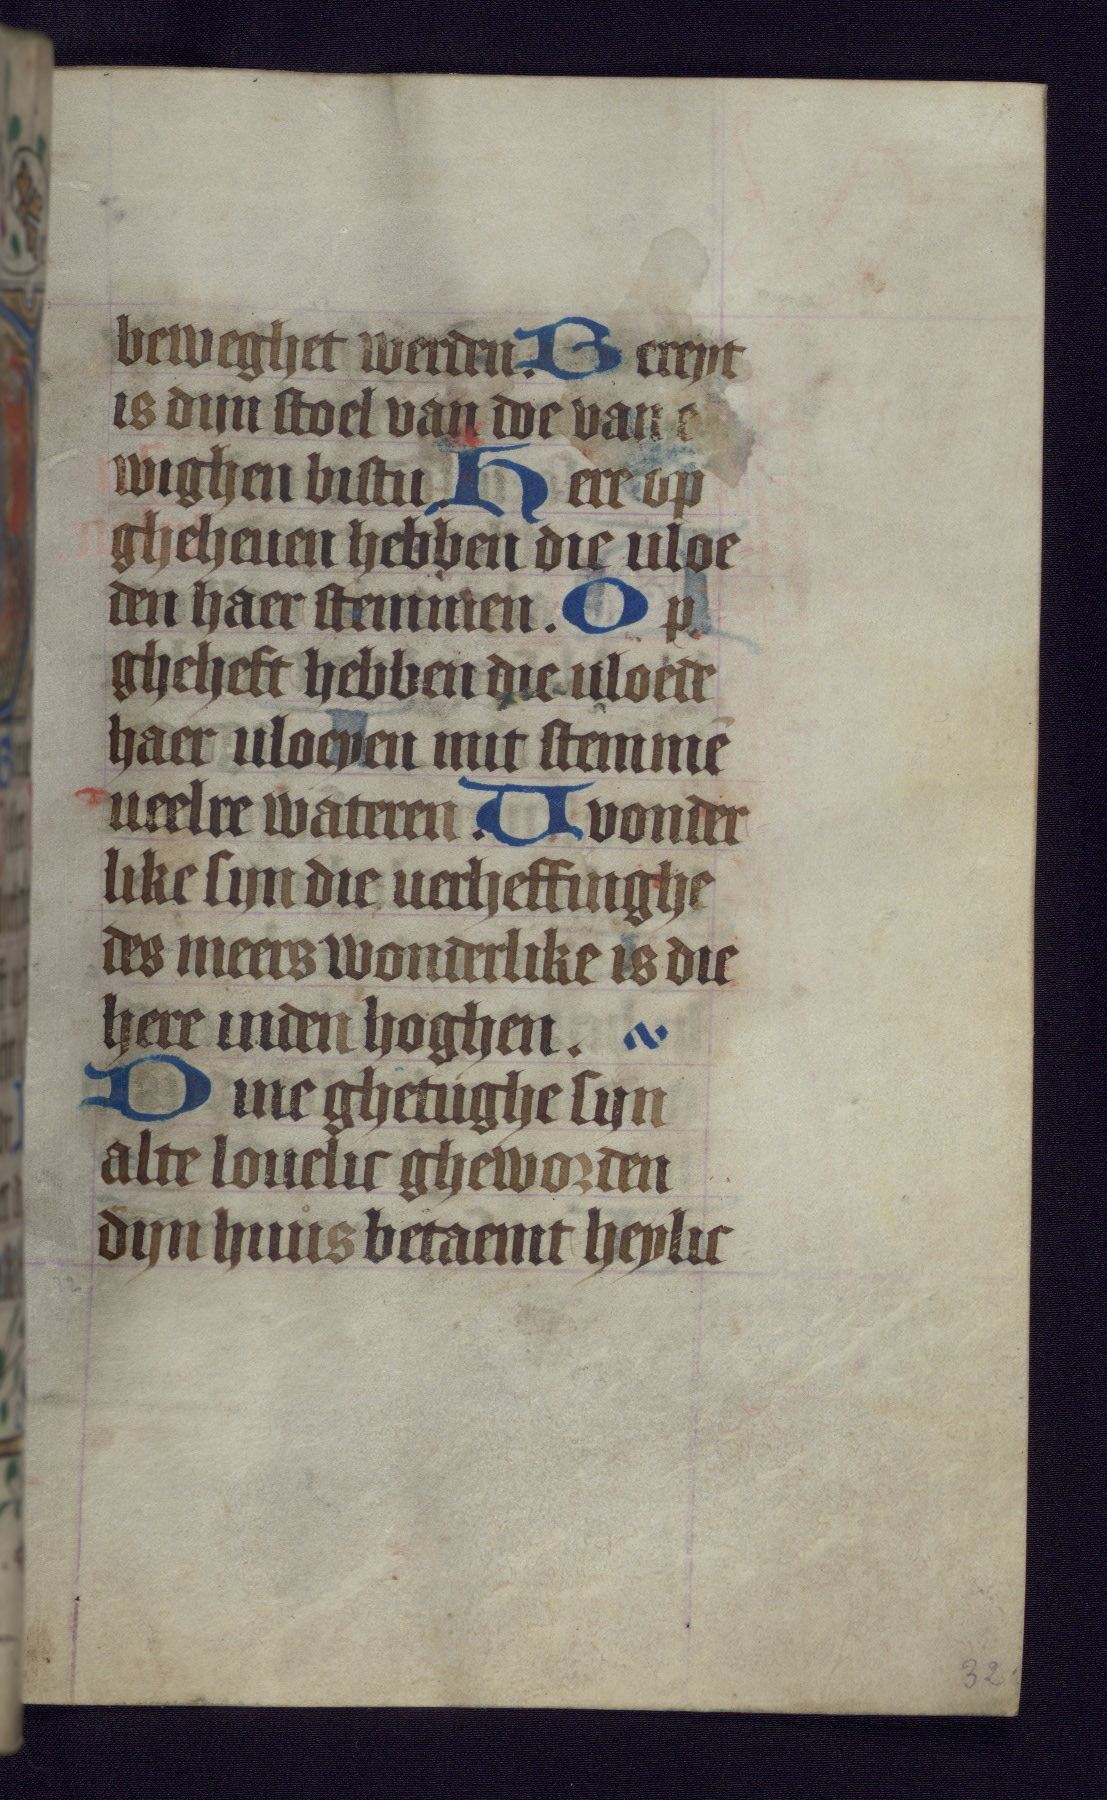 beweghet werden. Bereyt
is dijn stoel van doe van e
wighen bistu Here op
gheheuen hebben die uloe
den haer stemmen. Op
gheheft hebben die uloede
haer uloeyen mit stemmē
ueelre wateren. Uvonder
like sijn die uerheffinghe
des meers wonderlike is die
here inden hoghen.
Dine ghetughe sijn
alte louelic gheworden
dijn huus betaemt heylic
32